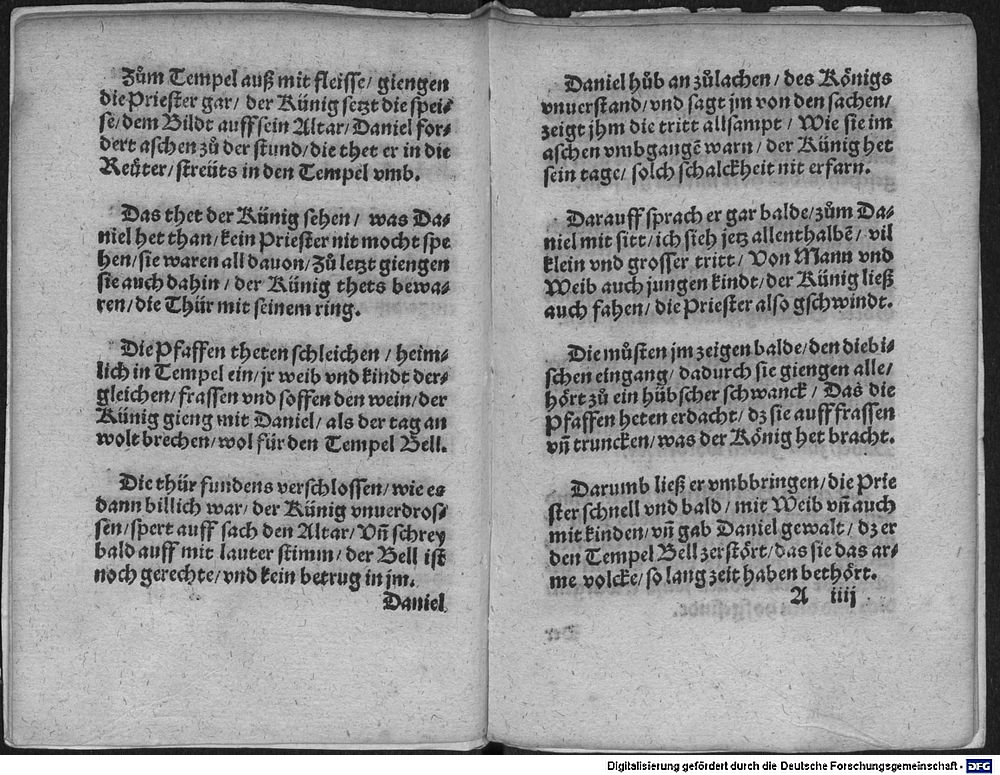 Zům Tempel auß mit fleisse/ giengen
die Priester gar/ der Künig setzt die spei-
se/ dem Bildt auff sein Altar/ Daniel for-
dert aschen zů der stund/ die thet er in die
Reüter/ streüts in den Tempel vmb.
Das thet der Künig sehen/ was Da-
niel het than/ kein Priester nit mocht spe
hen/ sie waren all dauon/ Zů letzt giengen
sie auch dahin/ der Künig thets bewa-
ren/ die Thür mit seinem ring.
Die Pfaffen theten schleichen/ heim-
lich in Tempel ein/ jr weib vnd kindt der-
gleichen/ frassen vnd soffen den wein/ der
Künig gieng mit Daniel/ als der tag an
wolt brechen/ wol für den Tempel Bell.
Die thür fundens verschlossen/ wie es
dann billich war/ der Künig vnuerdros-
sen/ spert auff sach den Altar/ Vñ schrey
bald auff mit lauter stimm/ der Bell ist
noch gerechte/ vnd kein betrug in jm.
Daniel
Daniel hůb an zůlachen/ des Königs
vnuerstand/ vnd sagt jm von den sachen/
zeigt jhm die tritt allsampt/ Wie sie im
aschen vmbgangē warn/ der Künig het
sein tage/ solch schalckheit nit erfarn.
Darauff sprach er gar balde/ zům Da-
niel mit sitt/ ich sieh jetz allenthalbē/ vil
klein vnd grosser tritt/ Von Mann vnd
Weib auch jungen kindt/ der Künig ließ
auch fahen/ die Priester also gschwindt.
Die můsten jm zeigen balde/ den diebi-
schen eingang/ dadurch sie giengen alle/
hört zů ein hübscher schwanck/ Das die
Pfaffen heten erdacht/ dz sie auff frassen
vñ truncken/ was der König het bracht.
Darumb ließ er vmbbringen/ die Prie
ster schnell vnd bald/ mit Weib vñ auch
mit kinden/ vñ gab Daniel gewalt/ dz er
den Tempel Bell zerstört/ das sie das ar-
me volcke/ so lang zeit haben bethört.
A iiij
Digitalisierung gefördert durch die Deutsche Forschungsgemeinschaft - DFG